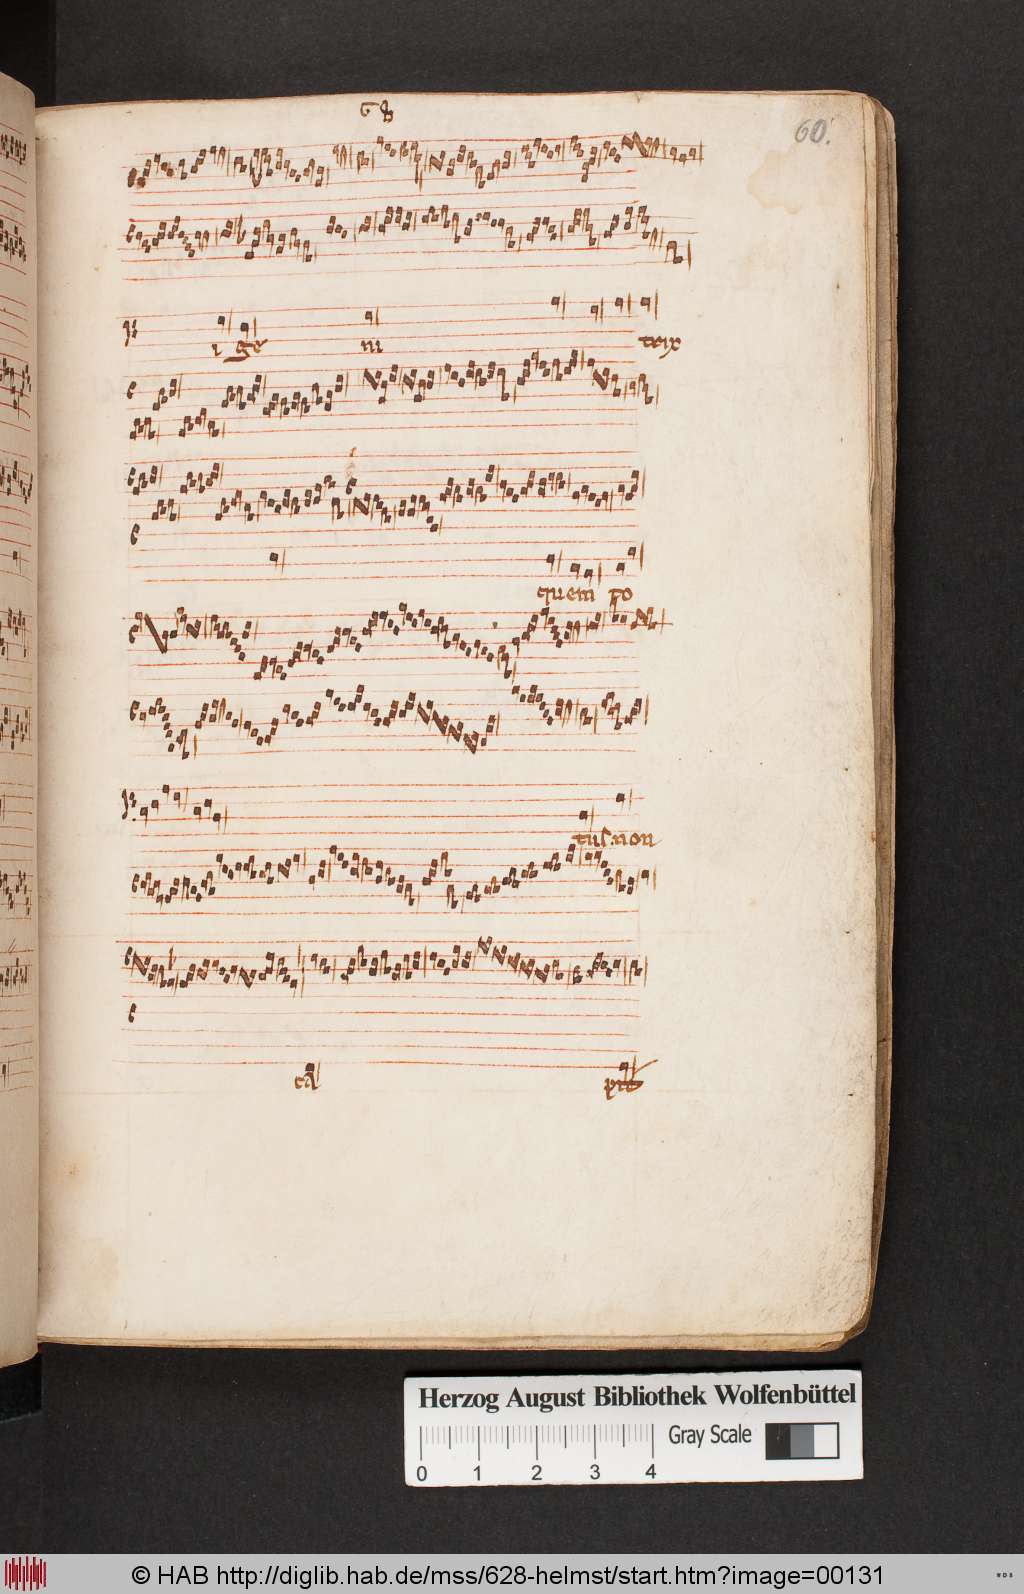 60.
i ge ni trix
quem po
tus. non
ca pit
Herzog August Bibliothek Wolfenbüttel
Gray Scale
0 1 2 3 4
© HAB http://diglib.hab.de/mss/628-helmst/start.htm?image=00131